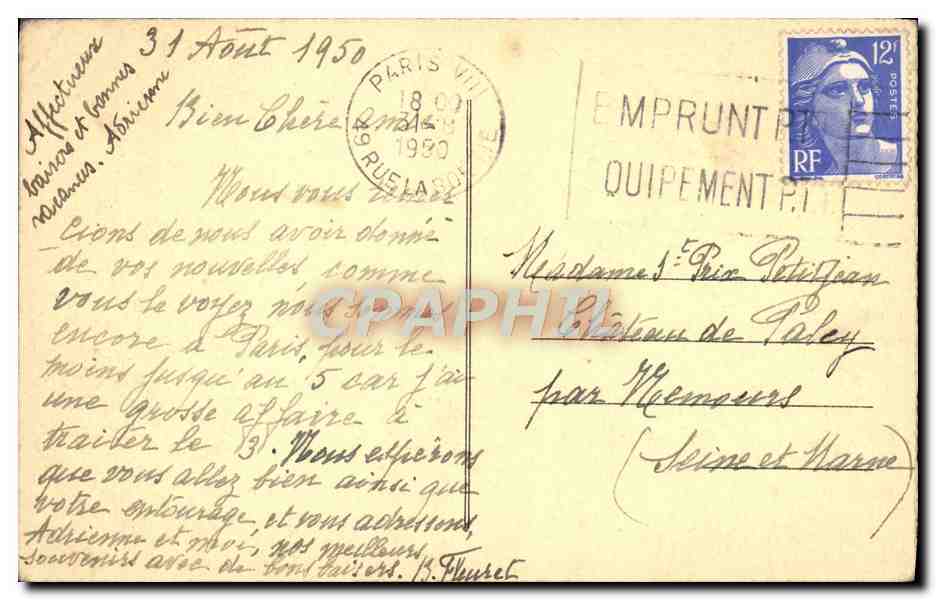 31 Août 1950
Affectueux
baisers et bonnes
vacances. Adrienne
Bien Chère amie
Nous vous remer
cions de nous avoir donné
de vos nouvelles comme
vous le voyez nous sommes
encore à Paris, pour le
moins jusqu'au 5 car j'ai
une grosse affaire à
traiter le 3. Nous espérons
que vous allez bien ainsi que
votre entourage, et vous adressons,
Adrienne et moi, nos meilleurs
souvenirs avec de bons baisers. B. Fleuret
PARIS VIII
18 00
31-8
1950
49 RUE LA BOETIE
EMPRUNT P.T.
QUIPEMENT P.T.
12F
POSTES
RF
Madame Prix Petitjean
Château de Paley
par Nemours
(Seine et Marne)
CPAPHIL